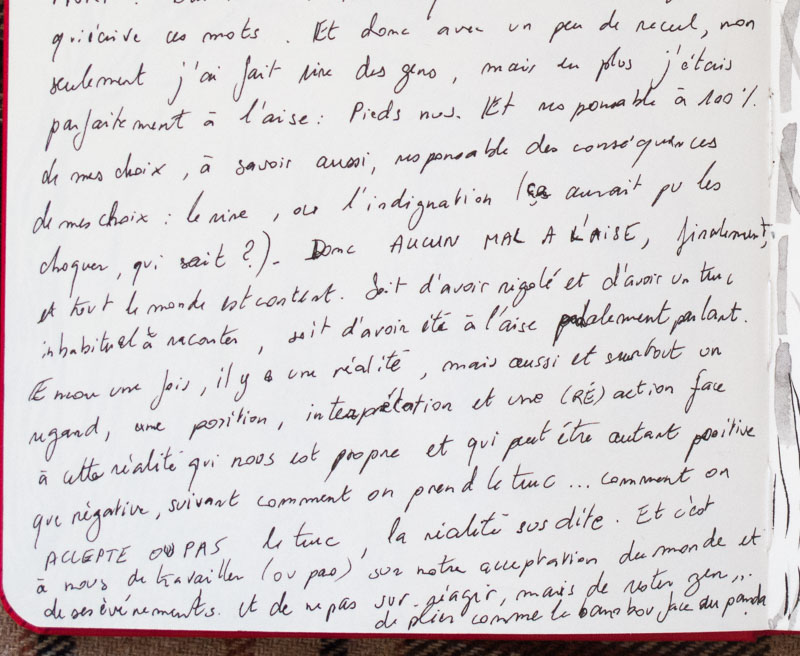 qu'écrive ces mots. Et donc avec un peu de recul, non
seulement j'ai fait rire des gens, mais en plus j'étais
parfaitement à l'aise : Pieds nus. Et responsable à 100%.
de mes choix, à savoir aussi, responsable des conséquences
de mes choix : le rire, ou l'indignation (ça aurait pu les
choquer, qui sait ?). Donc AUCUN MAL A L'AISE, finalement,
et tout le monde est content. Soit d'avoir rigolé et d'avoir un truc
inhabituel à raconter, soit d'avoir été à l'aise pédalement parlant.
Encore une fois, il y a une réalité, mais aussi et surtout un
regard, une position, interprétation et une (RÉ)action face
à cette réalité qui nous est propre et qui peut être autant positive
que négative, suivant comment on prend le truc... comment on
ACCEPTE OU PAS le truc, la réalité sus dite. Et c'est
à nous de travailler (ou pas) sur notre acceptation du monde et
de ses événements. Et de ne pas sur-réagir, mais de rester zen...
de plier comme le bambou face au panda